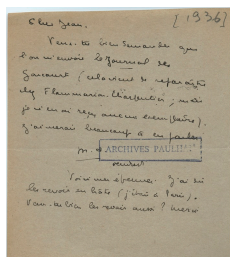 [1936]
Cher Jean.
Veux-tu bien demander que
l'on m'envoie le Journal des
Goncourt (cela vient de reparaître
chez Flammarion-Charpentier, mais
je n'en ai reçu aucun exemplaire).
J'aimerais beaucoup à en parler
ARCHIVES PAULHAN
Voici mes épreuves. J'ai dû
les revoir en hâte (j'étais à Paris).
Veux-tu bien les revoir aussi? merci